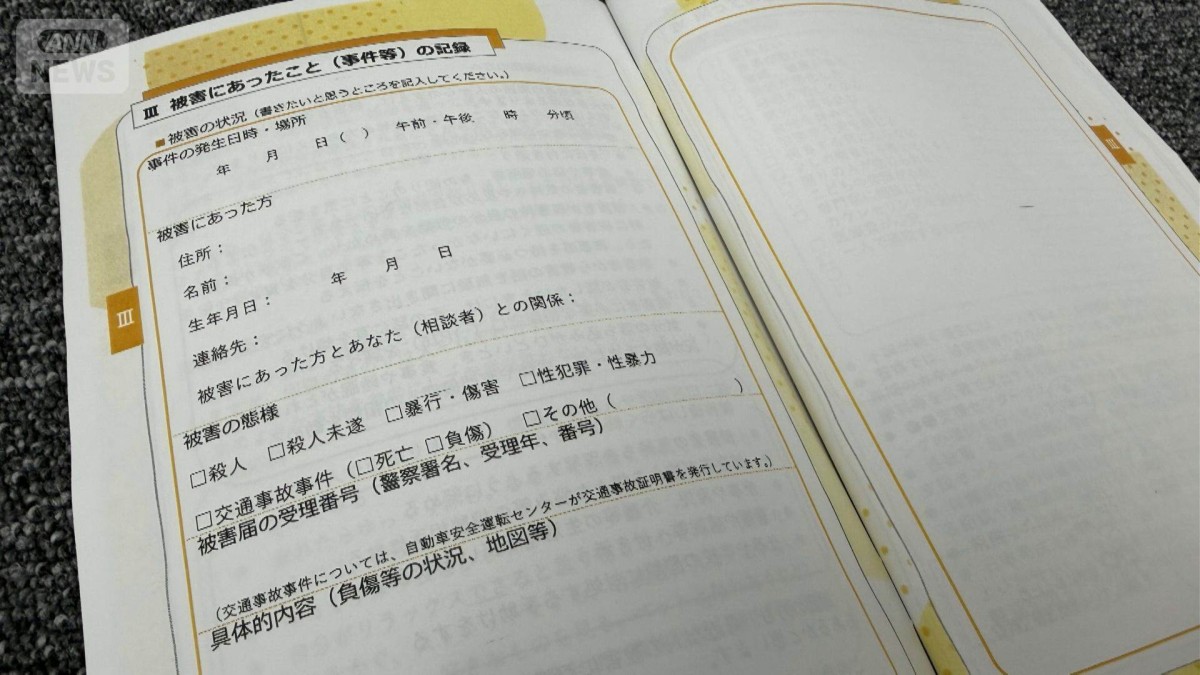 ANN
NEWS
Ⅲ 被害にあったこと（事件等）の記録
■被害の状況（書きたいと思うところを記入してください。）
事件の発生日時・場所
年 月 日（ ） 午前・午後 時 分頃
被害にあった方
住所：
名前：
生年月日： 年 月 日
連絡先：
被害にあった方とあなた（相談者）との関係：
被害の態様
□殺人 □殺人未遂 □暴行・傷害 □性犯罪・性暴力
□交通事故事件（□死亡 □負傷） □その他（ ）
被害届の受理番号（警察署名、受理年、番号）
（交通事故事件については、自動車安全運転センターが交通事故証明書を発行しています。）
具体的内容（負傷等の状況、地図等）
Ⅲ
Ⅲ